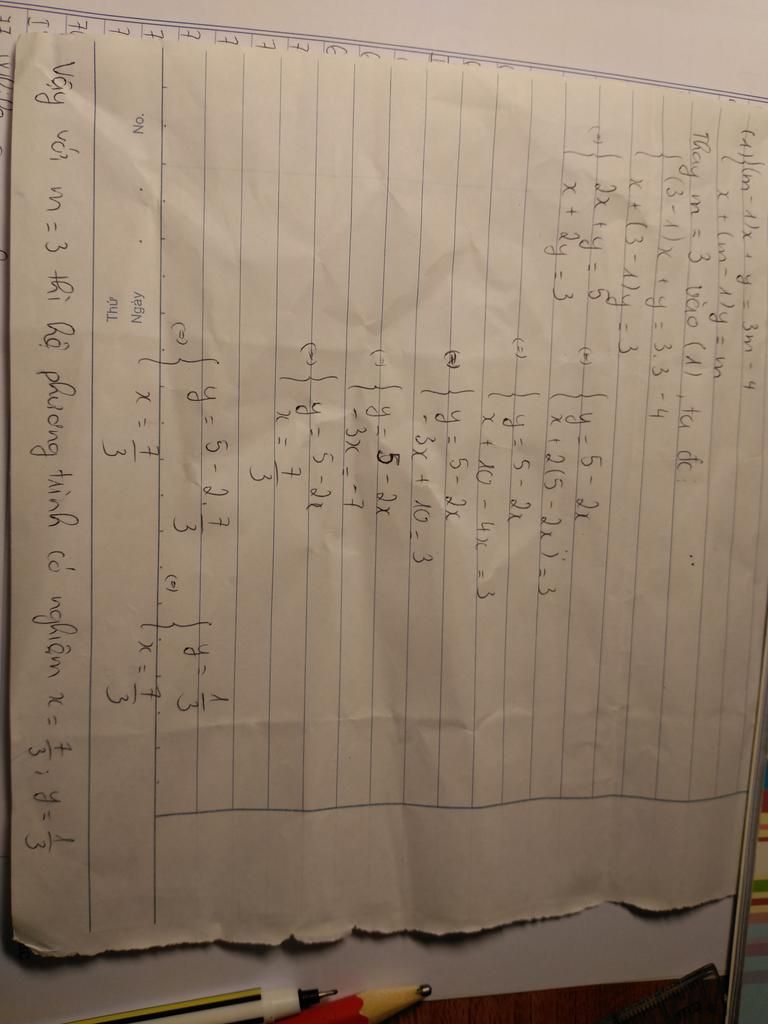 (1) { (m-1)x + y = 3m - 4
{ x + (m-1)y = m
Thay m = 3 vào (1), ta đc:
{ (3-1)x + y = 3.3 - 4
{ x + (3-1)y = 3
(=) { 2x + y = 5
{ x + 2y = 3
(=) { y = 5 - 2x
{ x + 2(5 - 2x) = 3
(=) { y = 5 - 2x
{ x + 10 - 4x = 3
(=) { y = 5 - 2x
{ - 3x + 10 = 3
(=) { y = 5 - 2x
{ - 3x = -7
(=) { y = 5 - 2x
{ x = 7/3
(=) { y = 5 - 2.7/3 (=) { y = 1/3
{ x = 7/3 { x = 7/3
Thứ
Ngày
No.
Vậy với m = 3 thì hệ phương trình có nghiệm x = 7/3; y = 1/3